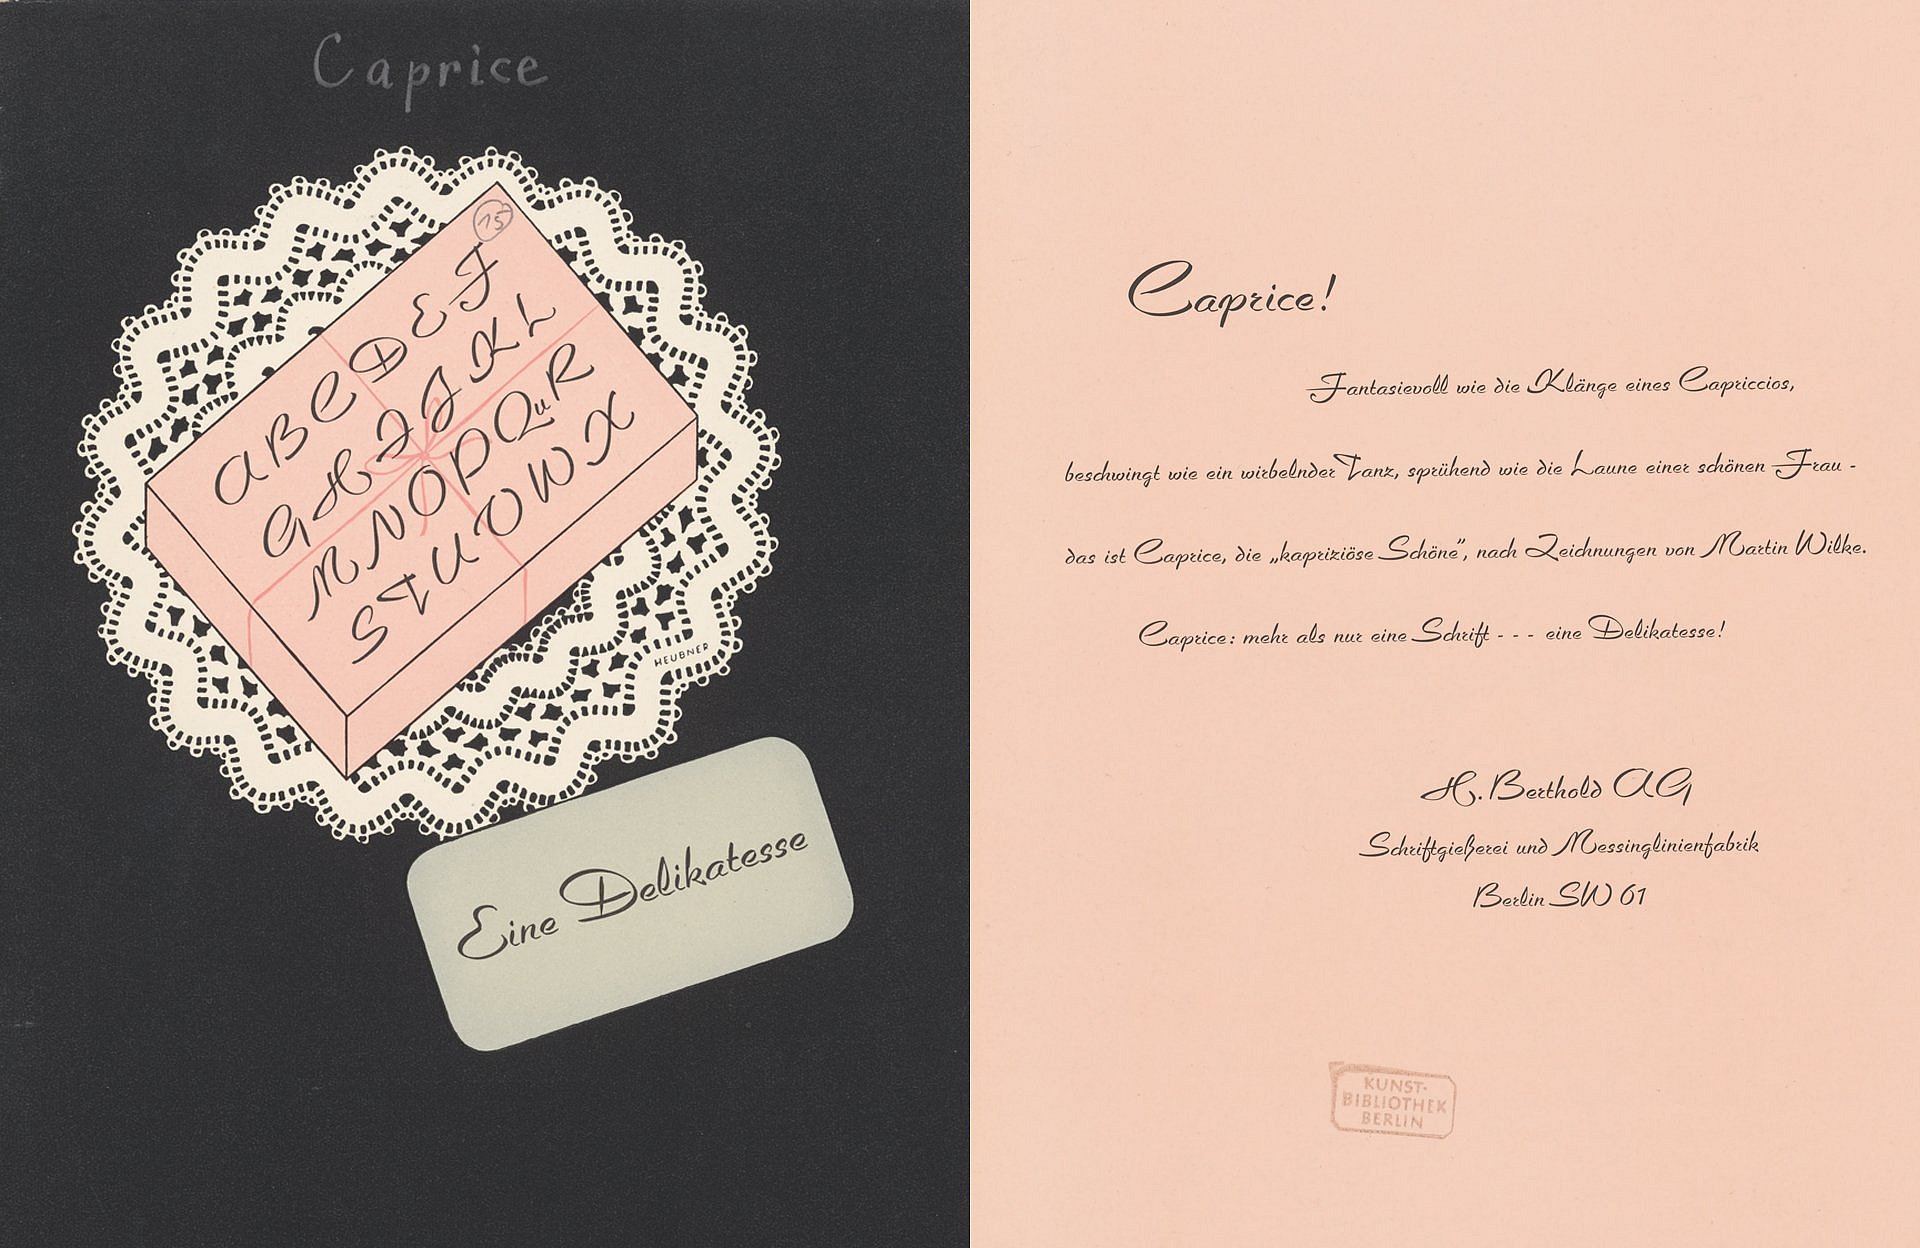 Caprice
15
A B C D E F
G H I J K L
M N O P Qu R
S T U V W X
HEUBNER
Eine Delikatesse
Caprice!
Fantasievoll wie die Klänge eines Capriccios,
beschwingt wie ein wirbelnder Tanz, sprühend wie die Laune einer schönen Frau -
das ist Caprice, die „kapriziöse Schöne”, nach Zeichnungen von Martin Wilke.
Caprice: mehr als nur eine Schrift - - - eine Delikatesse!
H. Berthold AG
Schriftgießerei und Messinglinienfabrik
Berlin SW 61
KUNST-
BIBLIOTHEK
BERLIN